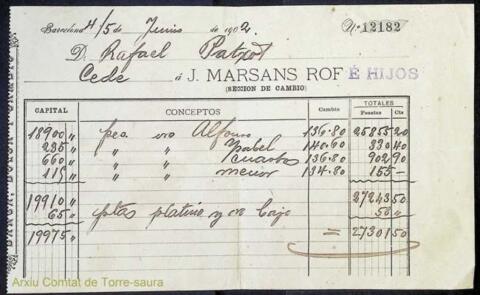 Barcelona 4/5 de Junio de 1902. Nº 12182
D. Rafael Patxot
Cede á J. MARSANS ROF É HIJOS
(SECCION DE CAMBIO)
CAPITAL CONCEPTOS Cambio TOTALES
Pesetas Cts
18900 " pea. oro Alfonso 136.80 25855 20
235 " " " Ysabel 140.60 330 40
660 " " " cuartos 136.80 902 90
115 " " " menor 134.80 155 —
19910 " 27243 50
65 " ptas platino y oro bajo 50 "
19975 " " 27301 50
Arxiu Comtat de Torre-saura